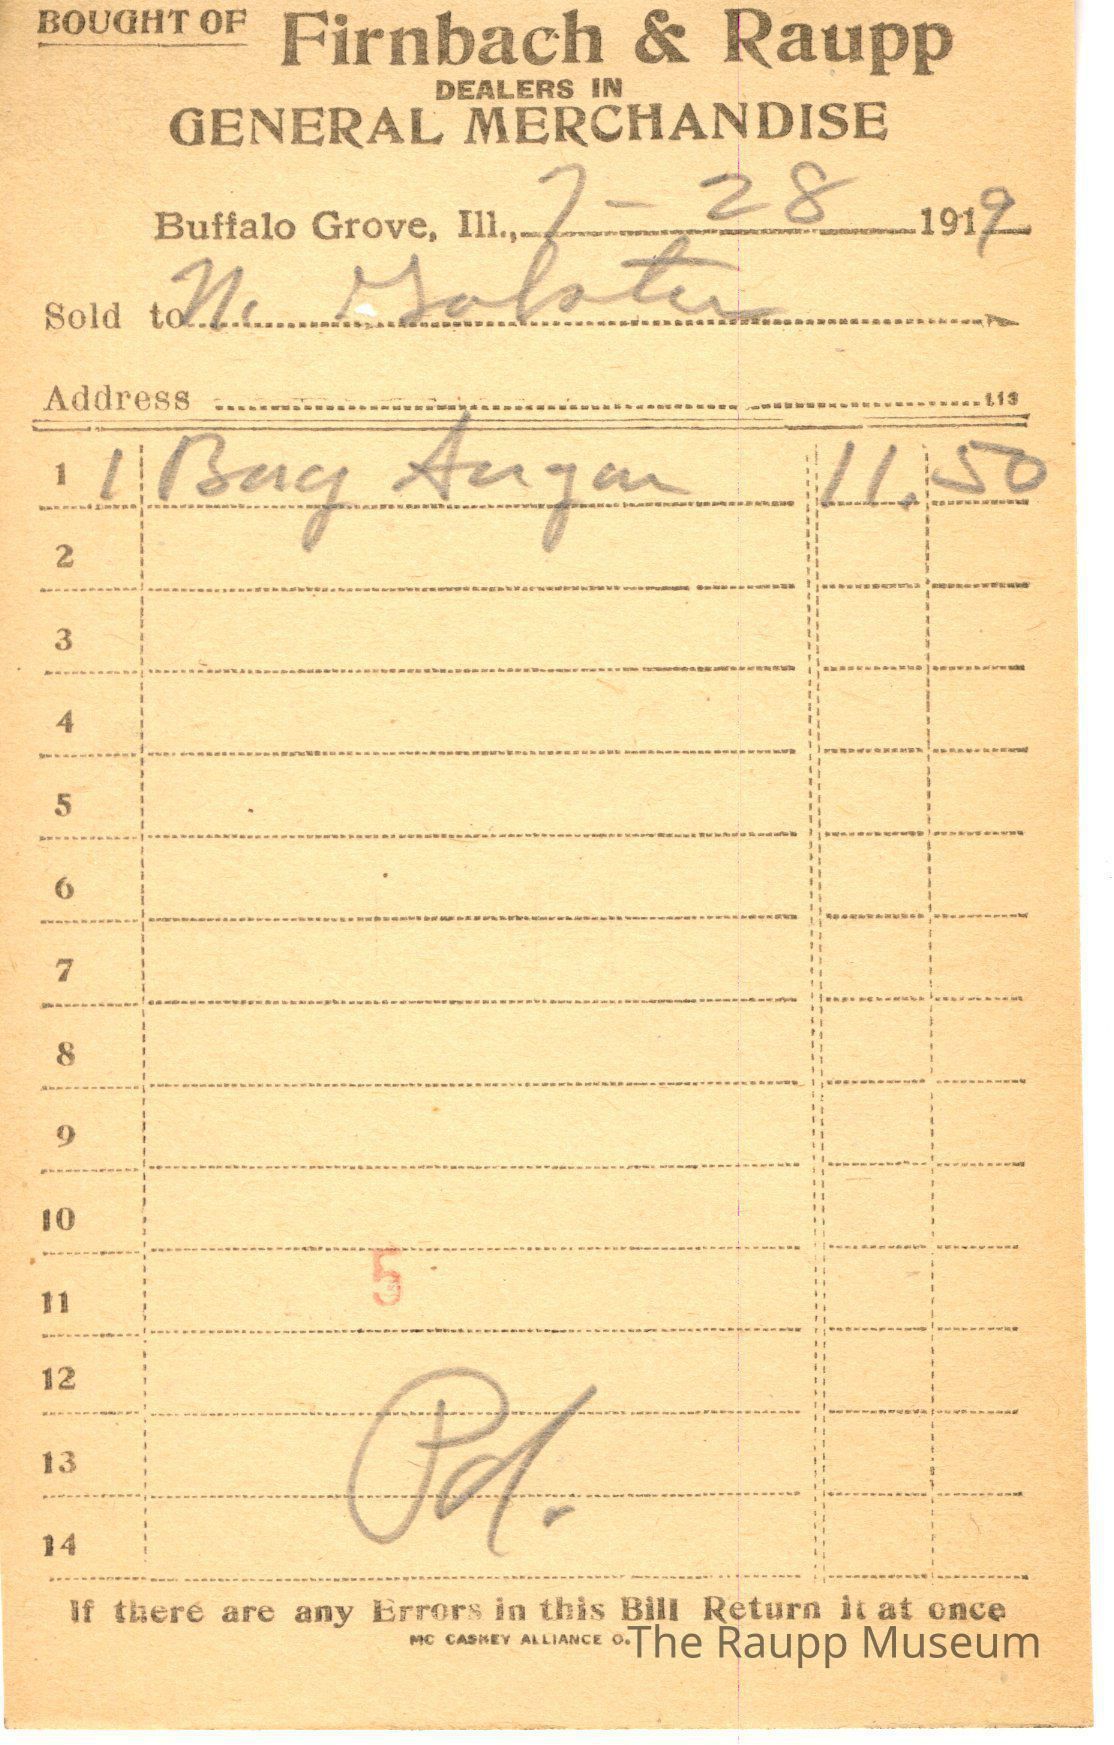 BOUGHT OF Firnbach & Raupp
DEALERS IN
GENERAL MERCHANDISE
Buffalo Grove, Ill., 7-28 1919
Sold to N.
Address 113
1 1 Bag Sugar 11.50
2
3
4
5
6
7
8
9
10
5
11
12
13
Pd.
14
If there are any Errors in this Bill Return it at once
MC CASKEY ALLIANCE O.
The Raupp Museum